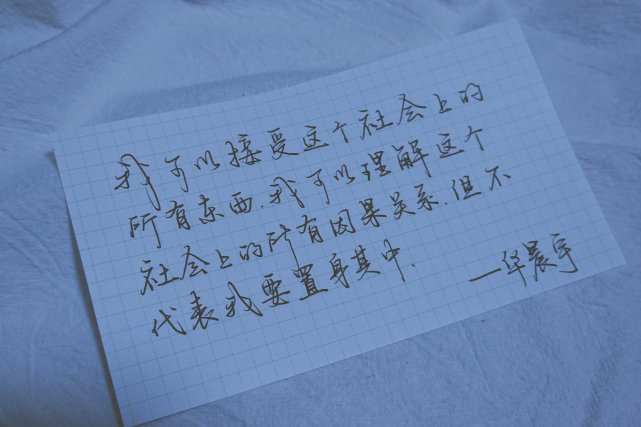 我可以接受这个社会上的
所有东西.我可以理解这个
社会上的所有因果关系.但不
代表我要置身其中.
—华晨宇